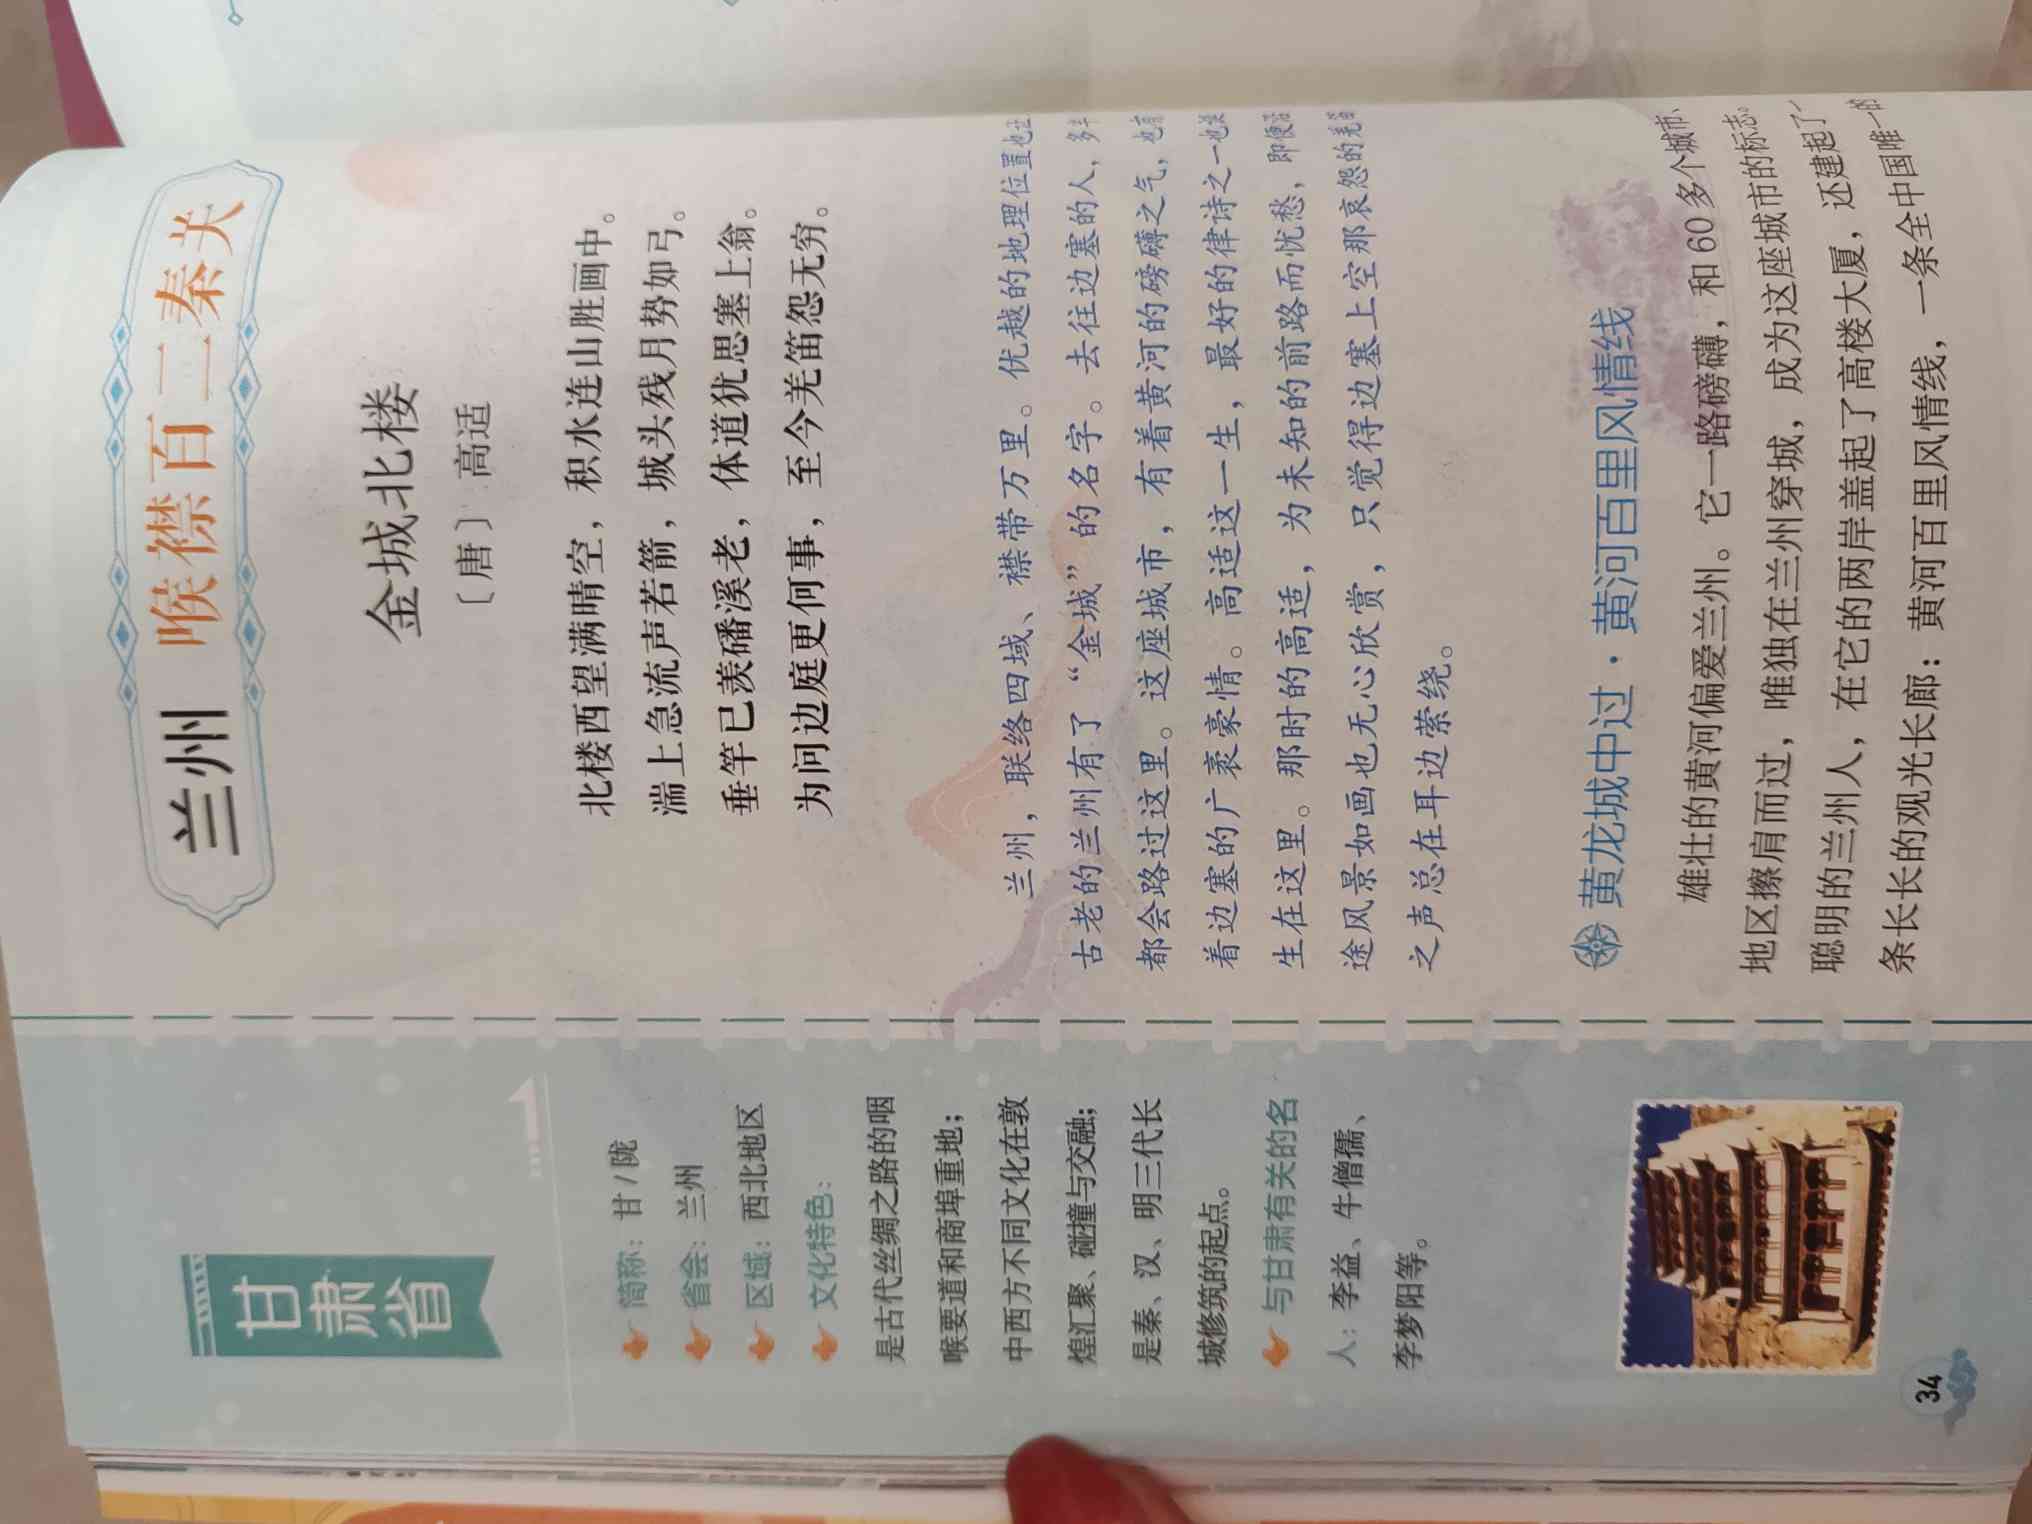 甘肃省
简称：甘/陇
省会：兰州
区域：西北地区
文化特色：
是古代丝绸之路的咽
喉要道和商埠重地；
中西方不同文化在敦
煌汇聚、碰撞与交融；
是秦、汉、明三代长
城修筑的起点。
与甘肃有关的名
人：李益、牛僧孺、
李梦阳等。
34
兰州 喉襟百二秦关
金城北楼
〔唐〕高适
北楼西望满晴空，积水连山胜画中。
湍上急流声若箭，城头残月势如弓。
垂竿已羡磻溪老，体道犹思塞上翁。
为问边庭更何事，至今羌笛怨无穷。
兰州，联络四域、襟带万里。优越的地理位置也
古老的兰州有了“金城”的名字。去往边塞的人，多
都会路过这里。这座城市，有着黄河的磅礴之气，也
着边塞的广袤豪情。高适这一生，最好的律诗之一也
生在这里。那时的高适，为未知的前路而忧愁，即便
途风景如画也无心欣赏，只觉得边塞上空那哀怨的羌
之声总在耳边萦绕。
黄龙城中过·黄河百里风情线
雄壮的黄河偏爱兰州。它一路磅礴，和60多个城市、
地区擦肩而过，唯独在兰州穿城，成为这座城市的标志。
聪明的兰州人，在它的两岸盖起了高楼大厦，还建起了一
条长长的观光长廊：黄河百里风情线，一条全中国唯一的